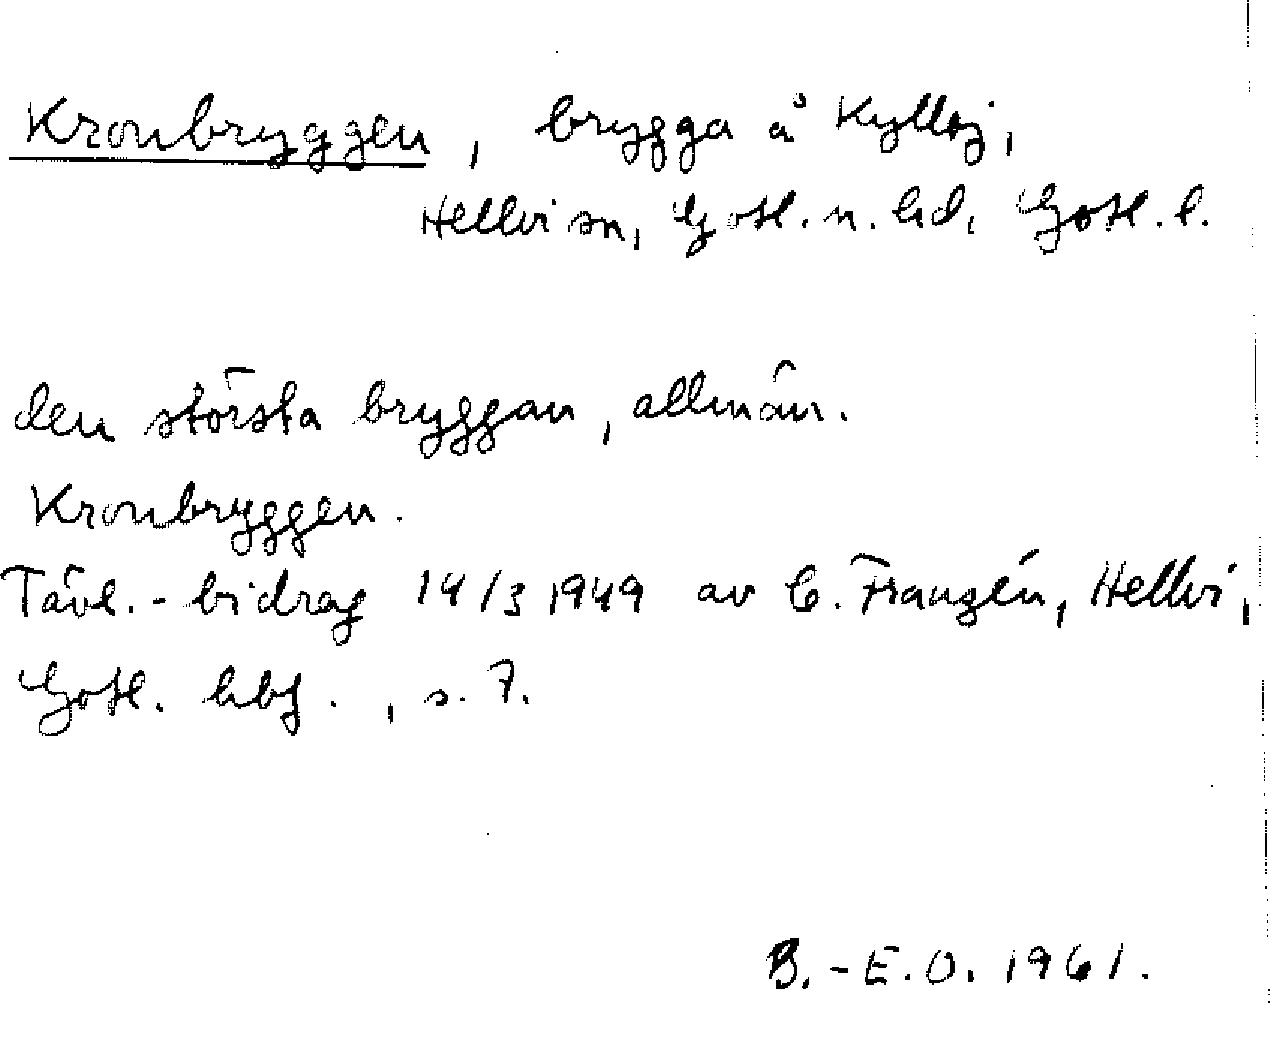 Kronbryggen, brygga å Kyllej,
Hellvi sn, Gotl. n. hd, Gotl. l.
den största bryggan, allmän.
Kronbryggen.
Tävl.-bidrag 14/3 1949 av C. Franzén, Hellvi,
Gotl. hbf., s. 7.
B.-E.O. 1961.